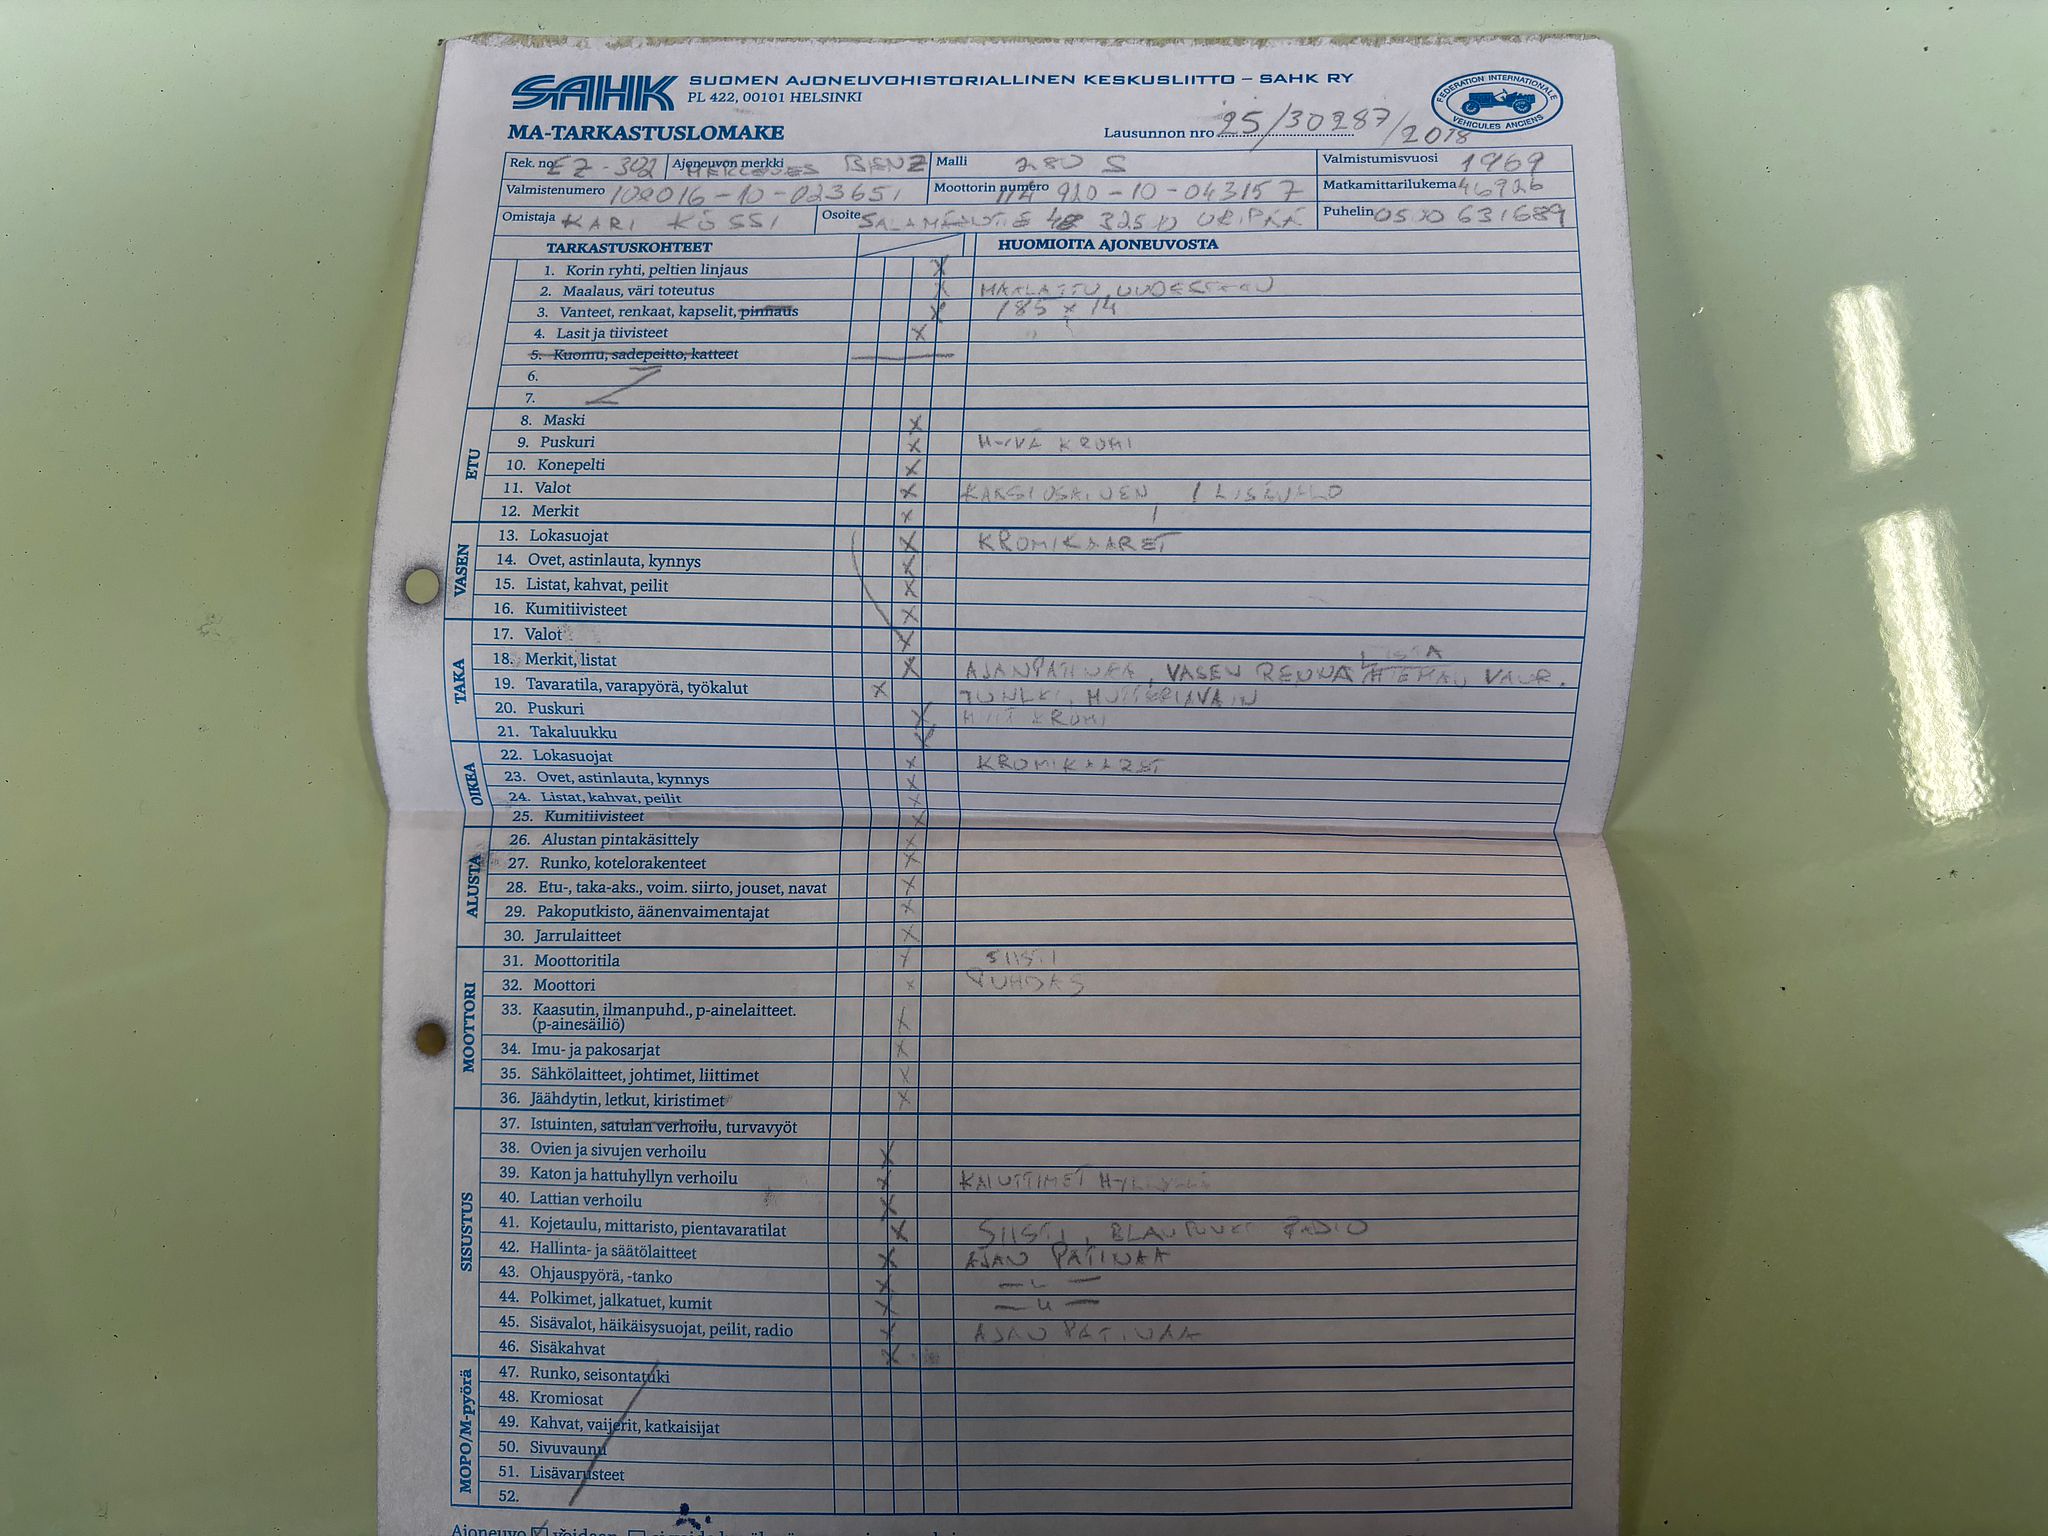 SAHK SUOMEN AJONEUVOHISTORIALLINEN KESKUSLIITTO – SAHK RY
PL 422, 00101 HELSINKI
FEDERATION INTERNATIONALE VEHICULES ANCIENS
MA-TARKASTUSLOMAKE Lausunnon nro 25/30287/2018
Rek. no EZ-302 Ajoneuvon merkki MERCEDES BENZ Malli 280 S Valmistumisvuosi 1969
Valmistenumero 108016-10-023651 Moottorin numero 114 920-10-043157 Matkamittarilukema 46926
Omistaja KARI KÖSSI Osoite Puhelin 0500 631689
TARKASTUSKOHTEET HUOMIOITA AJONEUVOSTA
1. Korin ryhti, peltien linjaus X
2. Maalaus, väri toteutus X MAALATTU UUDESTEEN
3. Vanteet, renkaat, kapselit, pinnaus X 185 x 14
4. Lasit ja tiivisteet X
5. Kuomu, sadepeitto, katteet
6.
7.
ETU
8. Maski X
9. Puskuri X HYVÄ KROMI
10. Konepelti X
11. Valot X KAKSIOSAINEN, 1 LISÄVALO
12. Merkit X
VASEN
13. Lokasuojat X KROMIKAARET
14. Ovet, astinlauta, kynnys X
15. Listat, kahvat, peilit X
16. Kumitiivisteet X
TAKA
17. Valot X
18. Merkit, listat X AJANPATINAA, VASEN REUNA LISTA VAUR.
19. Tavaratila, varapyörä, työkalut X TUNKKI, MUTTERIAVAIN
20. Puskuri X KROMI
21. Takaluukku X
OIKEA
22. Lokasuojat X KROMIKAARET
23. Ovet, astinlauta, kynnys X
24. Listat, kahvat, peilit X
25. Kumitiivisteet X
ALUSTA
26. Alustan pintakäsittely X
27. Runko, kotelorakenteet X
28. Etu-, taka-aks., voim. siirto, jouset, navat X
29. Pakoputkisto, äänenvaimentajat X
30. Jarrulaitteet X
MOOTTORI
31. Moottoritila X SIISTI
32. Moottori X PUHDAS
33. Kaasutin, ilmanpuhd., p-ainelaitteet. X
(p-ainesäiliö)
34. Imu- ja pakosarjat X
35. Sähkölaitteet, johtimet, liittimet X
36. Jäähdytin, letkut, kiristimet X
SISUSTUS
37. Istuinten, satulan verhoilu, turvavyöt
38. Ovien ja sivujen verhoilu X
39. Katon ja hattuhyllyn verhoilu X KAIUTTIMET
40. Lattian verhoilu X
41. Kojetaulu, mittaristo, pientavaratilat X SIISTI, BLAUPUNKT RADIO
42. Hallinta- ja säätölaitteet X AJAN PATINAA
43. Ohjauspyörä, -tanko X — u —
44. Polkimet, jalkatuet, kumit X — u —
45. Sisävalot, häikäisysuojat, peilit, radio X AJAN PATINAA
46. Sisäkahvat X
MOPO/M-pyörä
47. Runko, seisontatuki
48. Kromiosat
49. Kahvat, vaijerit, katkaisijat
50. Sivuvaunu
51. Lisävarusteet
52.
Ajoneuvo voidaan